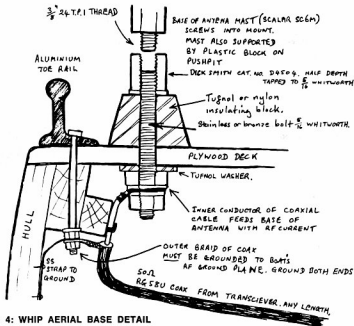 3/8" 24 T.P.I THREAD
BASE OF ANTENA MAST (SCALAR SC6M)
SCREWS INTO MOUNT.
MAST ALSO SUPPORTED
BY PLASTIC BLOCK ON
PUSHPIT
ALUMINIUM
TOE RAIL
DICK SMITH CAT. NO. D4504. HALF DEPTH
TAPPED TO 5/16 WHITWORTH.
Tufnol or nylon
insulating block.
Stainless or bronze bolt 5/16 WHITWORTH.
PLYWOOD DECK
TUFNOL WASHER.
HULL
INNER CONDUCTOR OF COAXIAL
CABLE FEEDS BASE OF
ANTENNA WITH RF CURRENT
OUTER BRAID OF COAX
MUST BE GROUNDED TO BOAT'S
RF GROUND PLANE. GROUND BOTH ENDS
SS
STRAP TO
GROUND
50Ω
RG58U COAX FROM TRANSCIEVER. ANY LENGTH.
4: WHIP AERIAL BASE DETAIL